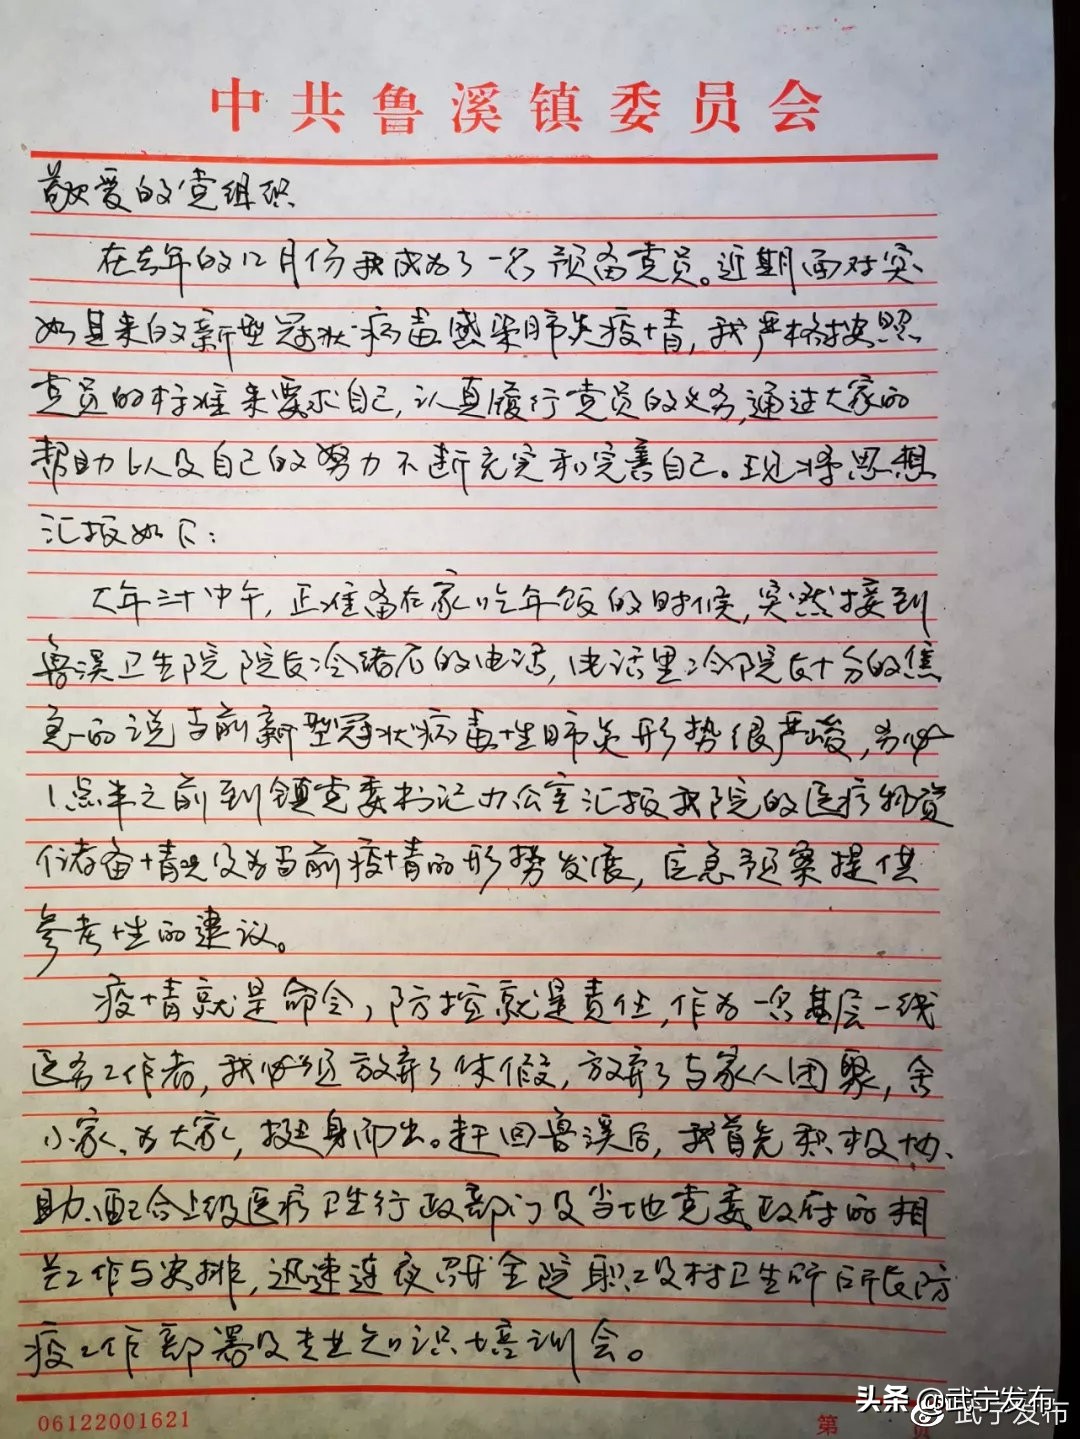 中共鲁溪镇委员会
敬爱的党组织
在去年的12月份我成为了一名预备党员。近期面对突
如其来的新型冠状病毒感染肺炎疫情，我严格按照
党员的标准来要求自己，认真履行党员的义务，通过大家的
帮助以及自己的努力不断充实和完善自己。现将思想
汇报如下：
大年三十中午，正准备在家吃年饭的时候，突然接到
鲁溪卫生院院长冷绪后的电话，电话里冷院长十分的焦
急的说当前新型冠状病毒性肺炎形势很严峻，务必
1点半之前到镇党委书记办公室汇报我院的医疗物资
储备情况及为当前疫情的形势发展，应急预案提供
参考性的建议。
疫情就是命令，防控就是责任，作为一名基层一线
医务工作者，我必须放弃了休假，放弃了与家人团聚，舍
小家、为大家，挺身而出。赶回鲁溪后，我首先积极协
助、配合上级医疗卫生行政部门及当地党委政府的相
关工作与安排，迅速连夜召开全院职工及村卫生所所长防
疫工作部署及专业知识培训会。
06122001621
第 页
头条 @武宁发布
武宁发布